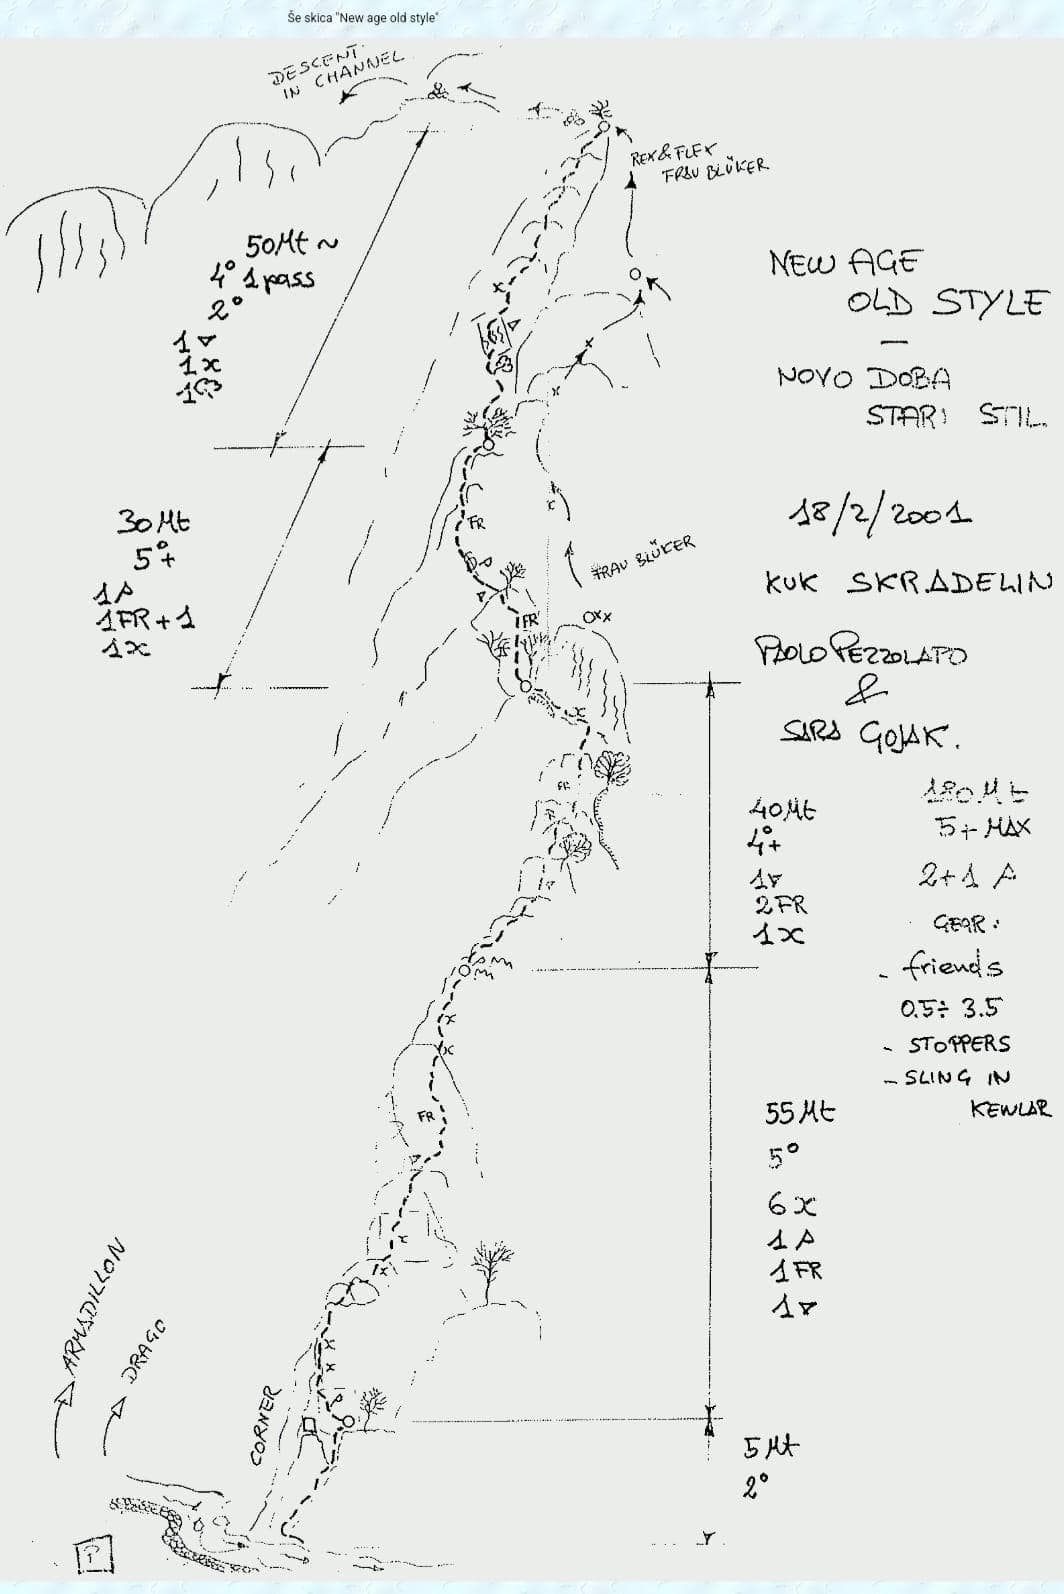 Še skica "New age old style"
DESCENT
IN CHANNEL
REX & FLEX
FRAU BLÜKER
50 Mt ~
4° 1 pass
2°
1
1x
1
NEW AGE
OLD STYLE
—
NOVO DOBA
STARI STIL.
30 Mt
5°+
1
1FR + 1
1x
18/2/2001
FR
FRAU BLÜKER
KUK SKRADELIN
FR
OXX
PAOLO PEZZOLATO
&
SARA GOJAK.
FR
40 Mt
4°+
1
2 FR
1x
180 Mt
5+ MAX
2+1
GEAR:
- friends
0.5÷ 3.5
- STOPPERS
- SLING IN
KEWLAR
FR
55 Mt
5°
6 x
1
1 FR
1
ARMADILLON
DRAGO
CORNER
5 Mt
2°
P